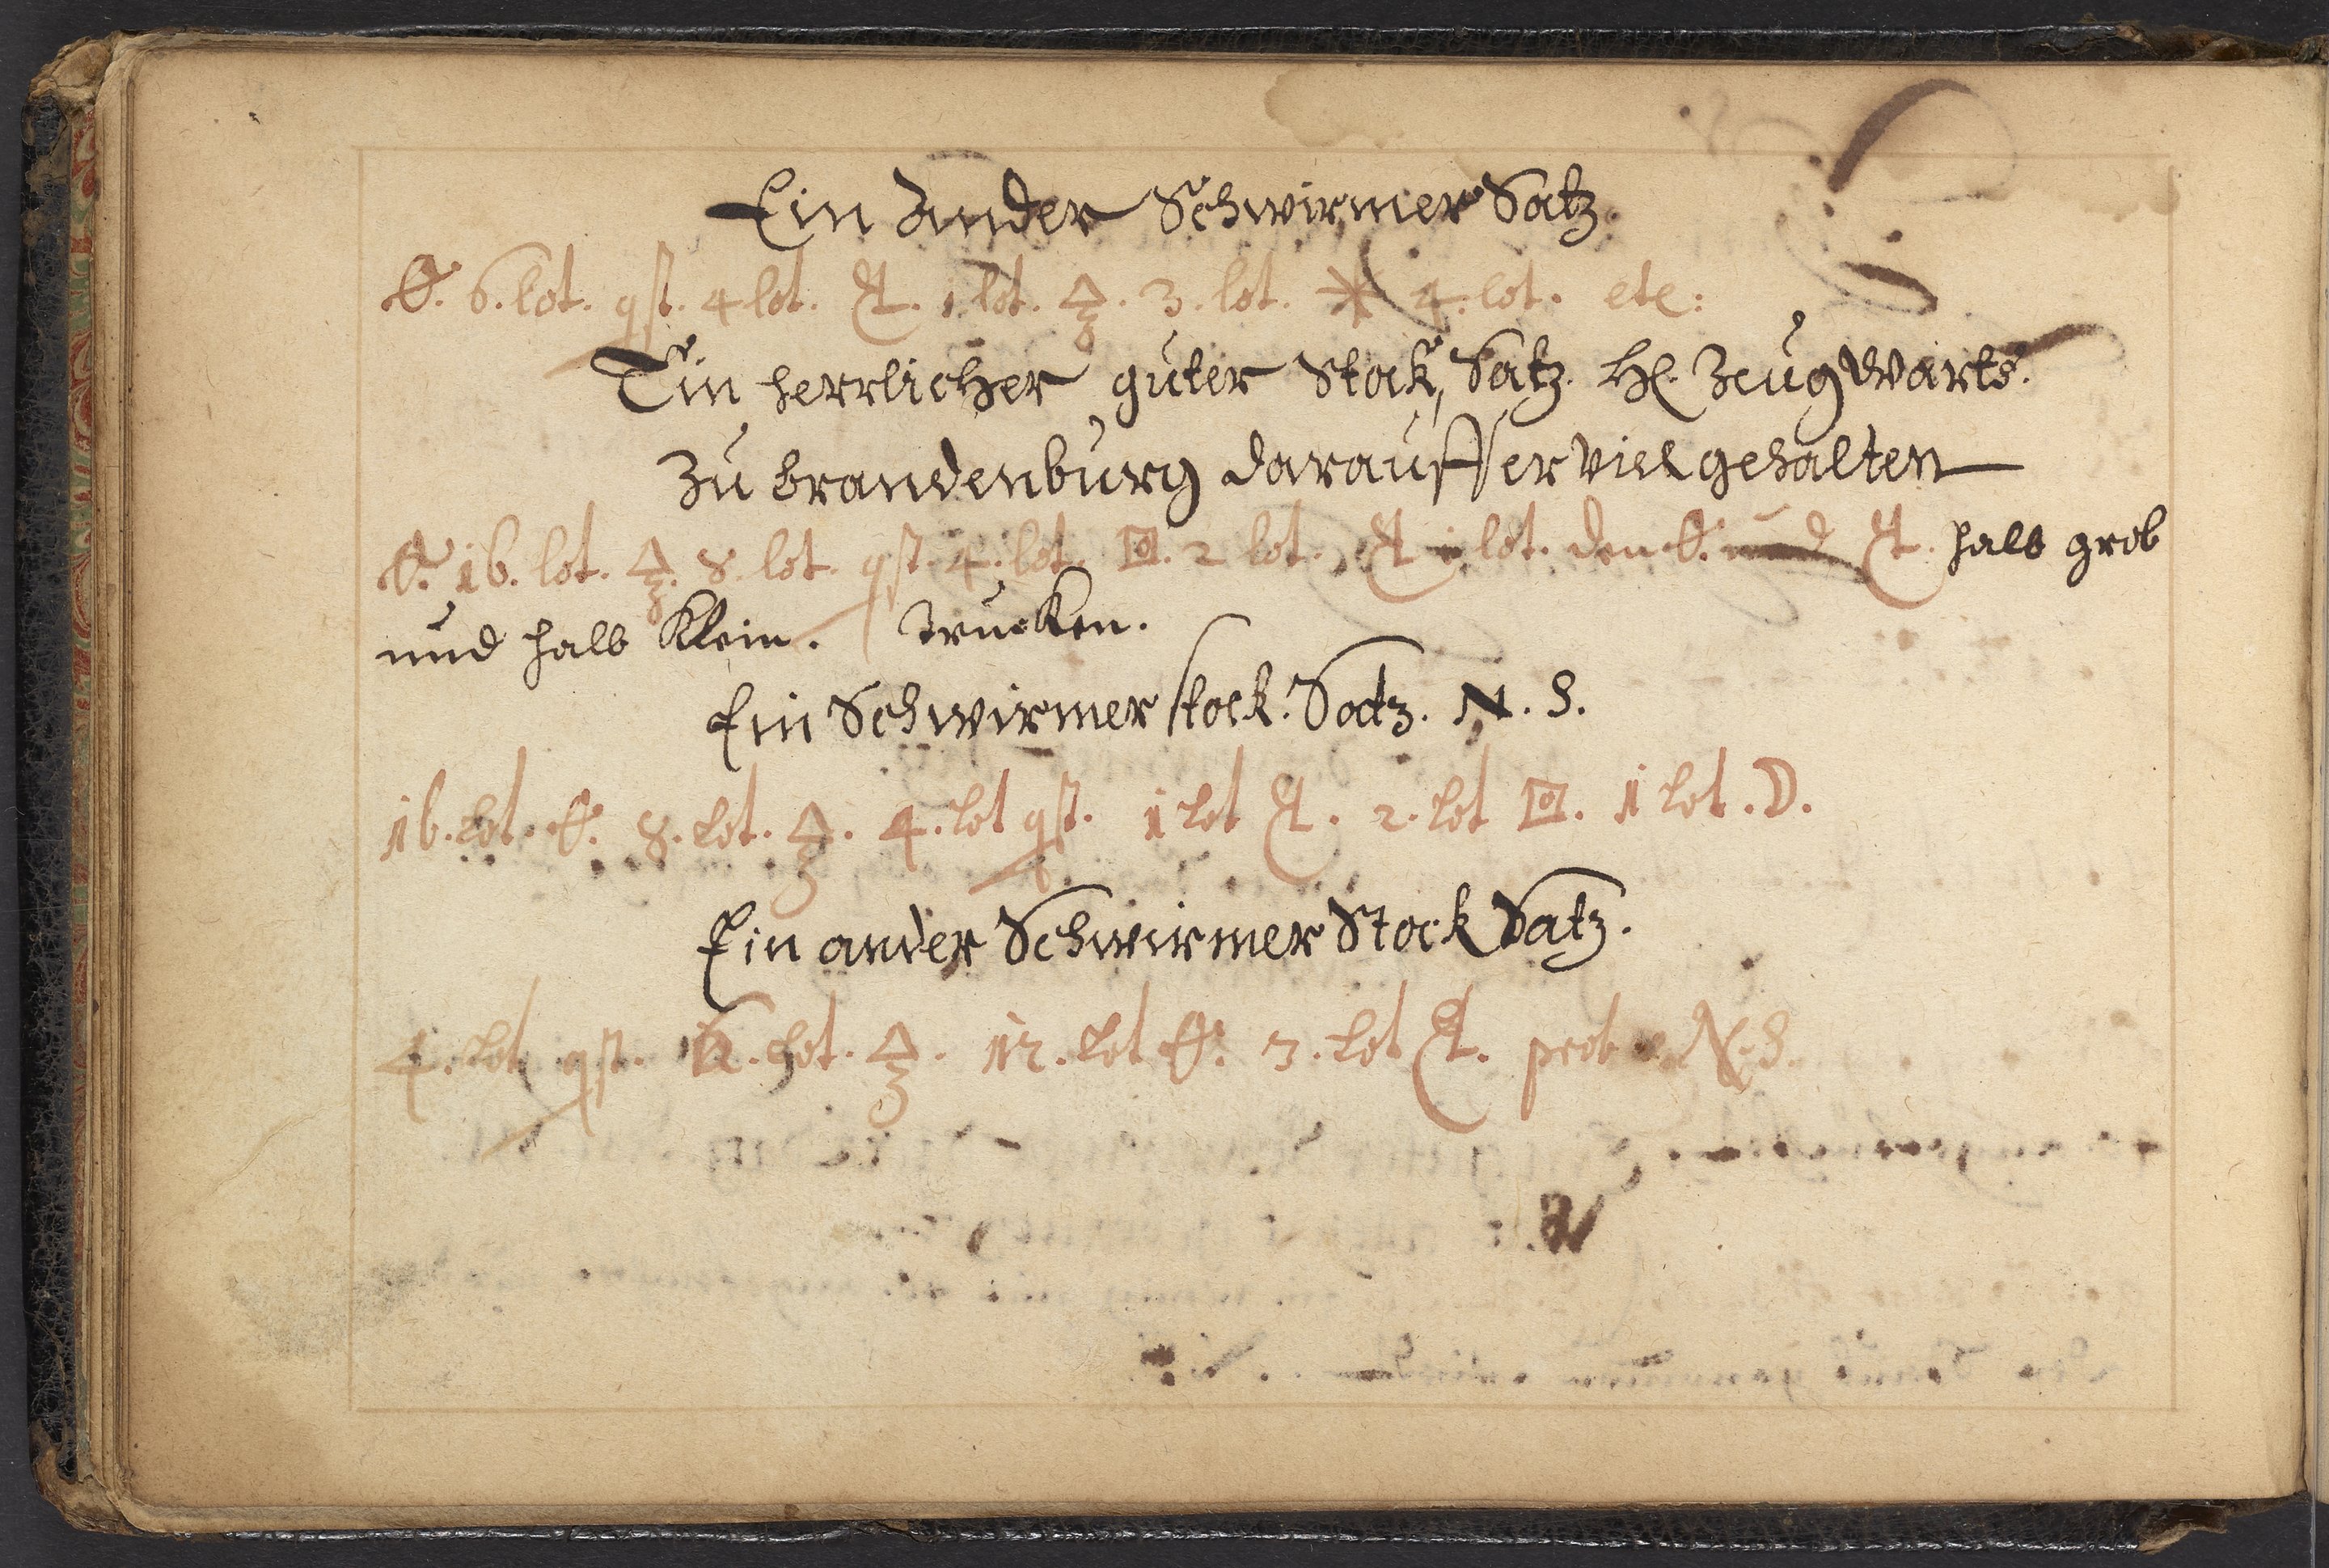 Ein Ander Schwirmer Satz.
6. lot. 4 lot. 1 lot. 3. lot. 4. lot. etc:
Ein herrlicher guter Stock, Satz. H. Zeugwarts.
Zu brandenburg darauff er viel gehalten
16. lot. 8. lot. 4. lot. 2 lot. 1 lot. den und halb grob
und halb Klein. Trucken.
Ein Schwirmer stock. Satz. N. S.
16. lot. 8. lot. 4. lot 1 lot 2. lot 1 lot. D.
Ein ander Schwirmer Stock Satz.
4. lot lot. 12. lot 3. lot prob N. S.